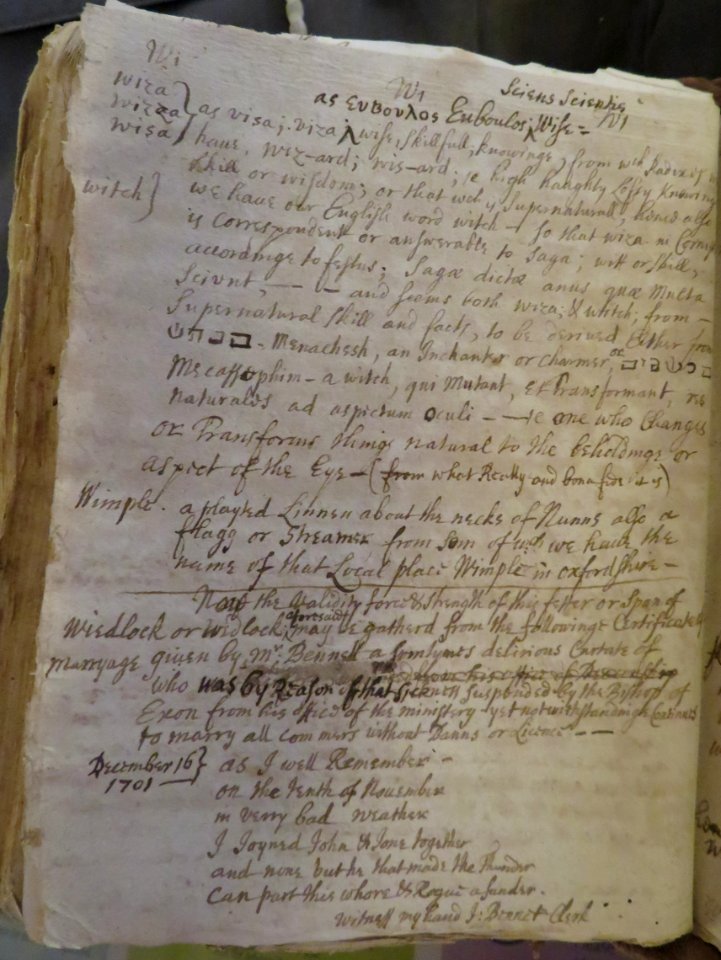 Wi
Wi
Wi
Sciens Scientis
as ευβουλος Euboulos Wise =
wiza
wizza
wisa
as visa; viza; wise, skillfull, knowinge, from wch
haue, wiz-ard; wis-ard; ie high haughty Lofty Knowing
skill or wisdom; or that wch is supernaturall, hence also
witch} we haue our English word witch — so that wiza in
is correspondent or answerable to saga; witt or skill,
accordinge to festus; Sagæ dictæ anus quæ Multa
Sciunt, — — — and seems both wiza; & witch; from —
Supernatural skill and facts, to be derived Either from
Menachesh, an Inchanter or charmer, or
Mecassephim — a witch, qui Mutant, Et Transformant, res
naturales ad aspectum oculi — — ie one who Changes
or Transforms things natural to the beholdings or
aspect of the Eye — (from what Really and bona fide is)
Wimple. a played Linnen about the necks of Nunns also a
flagg or streamer from som of wch we haue the
name of that Local place Wimple in oxfordshire —
Now the Validity force & strength of this fetter or Span of
Wiedlock or wedlock; aforesaid may be gatherd from the followinge Certificate
Marryage given by Mr. Bennett a somtymes delirious Curate of
who was by Reason of that sickness suspended by the Bishop of
Exon from his office of the ministery yet notwithstanding Continues
to marry all commers without Banns or Licence — —
December 16} as I well Remember —
1701 — on the tenth of November
in verry bad weather
I Joyned John & Jone together
and none but he that made the thunder
Can part this whore & Rogue asunder.
witness my hand J: Bennet Clerk